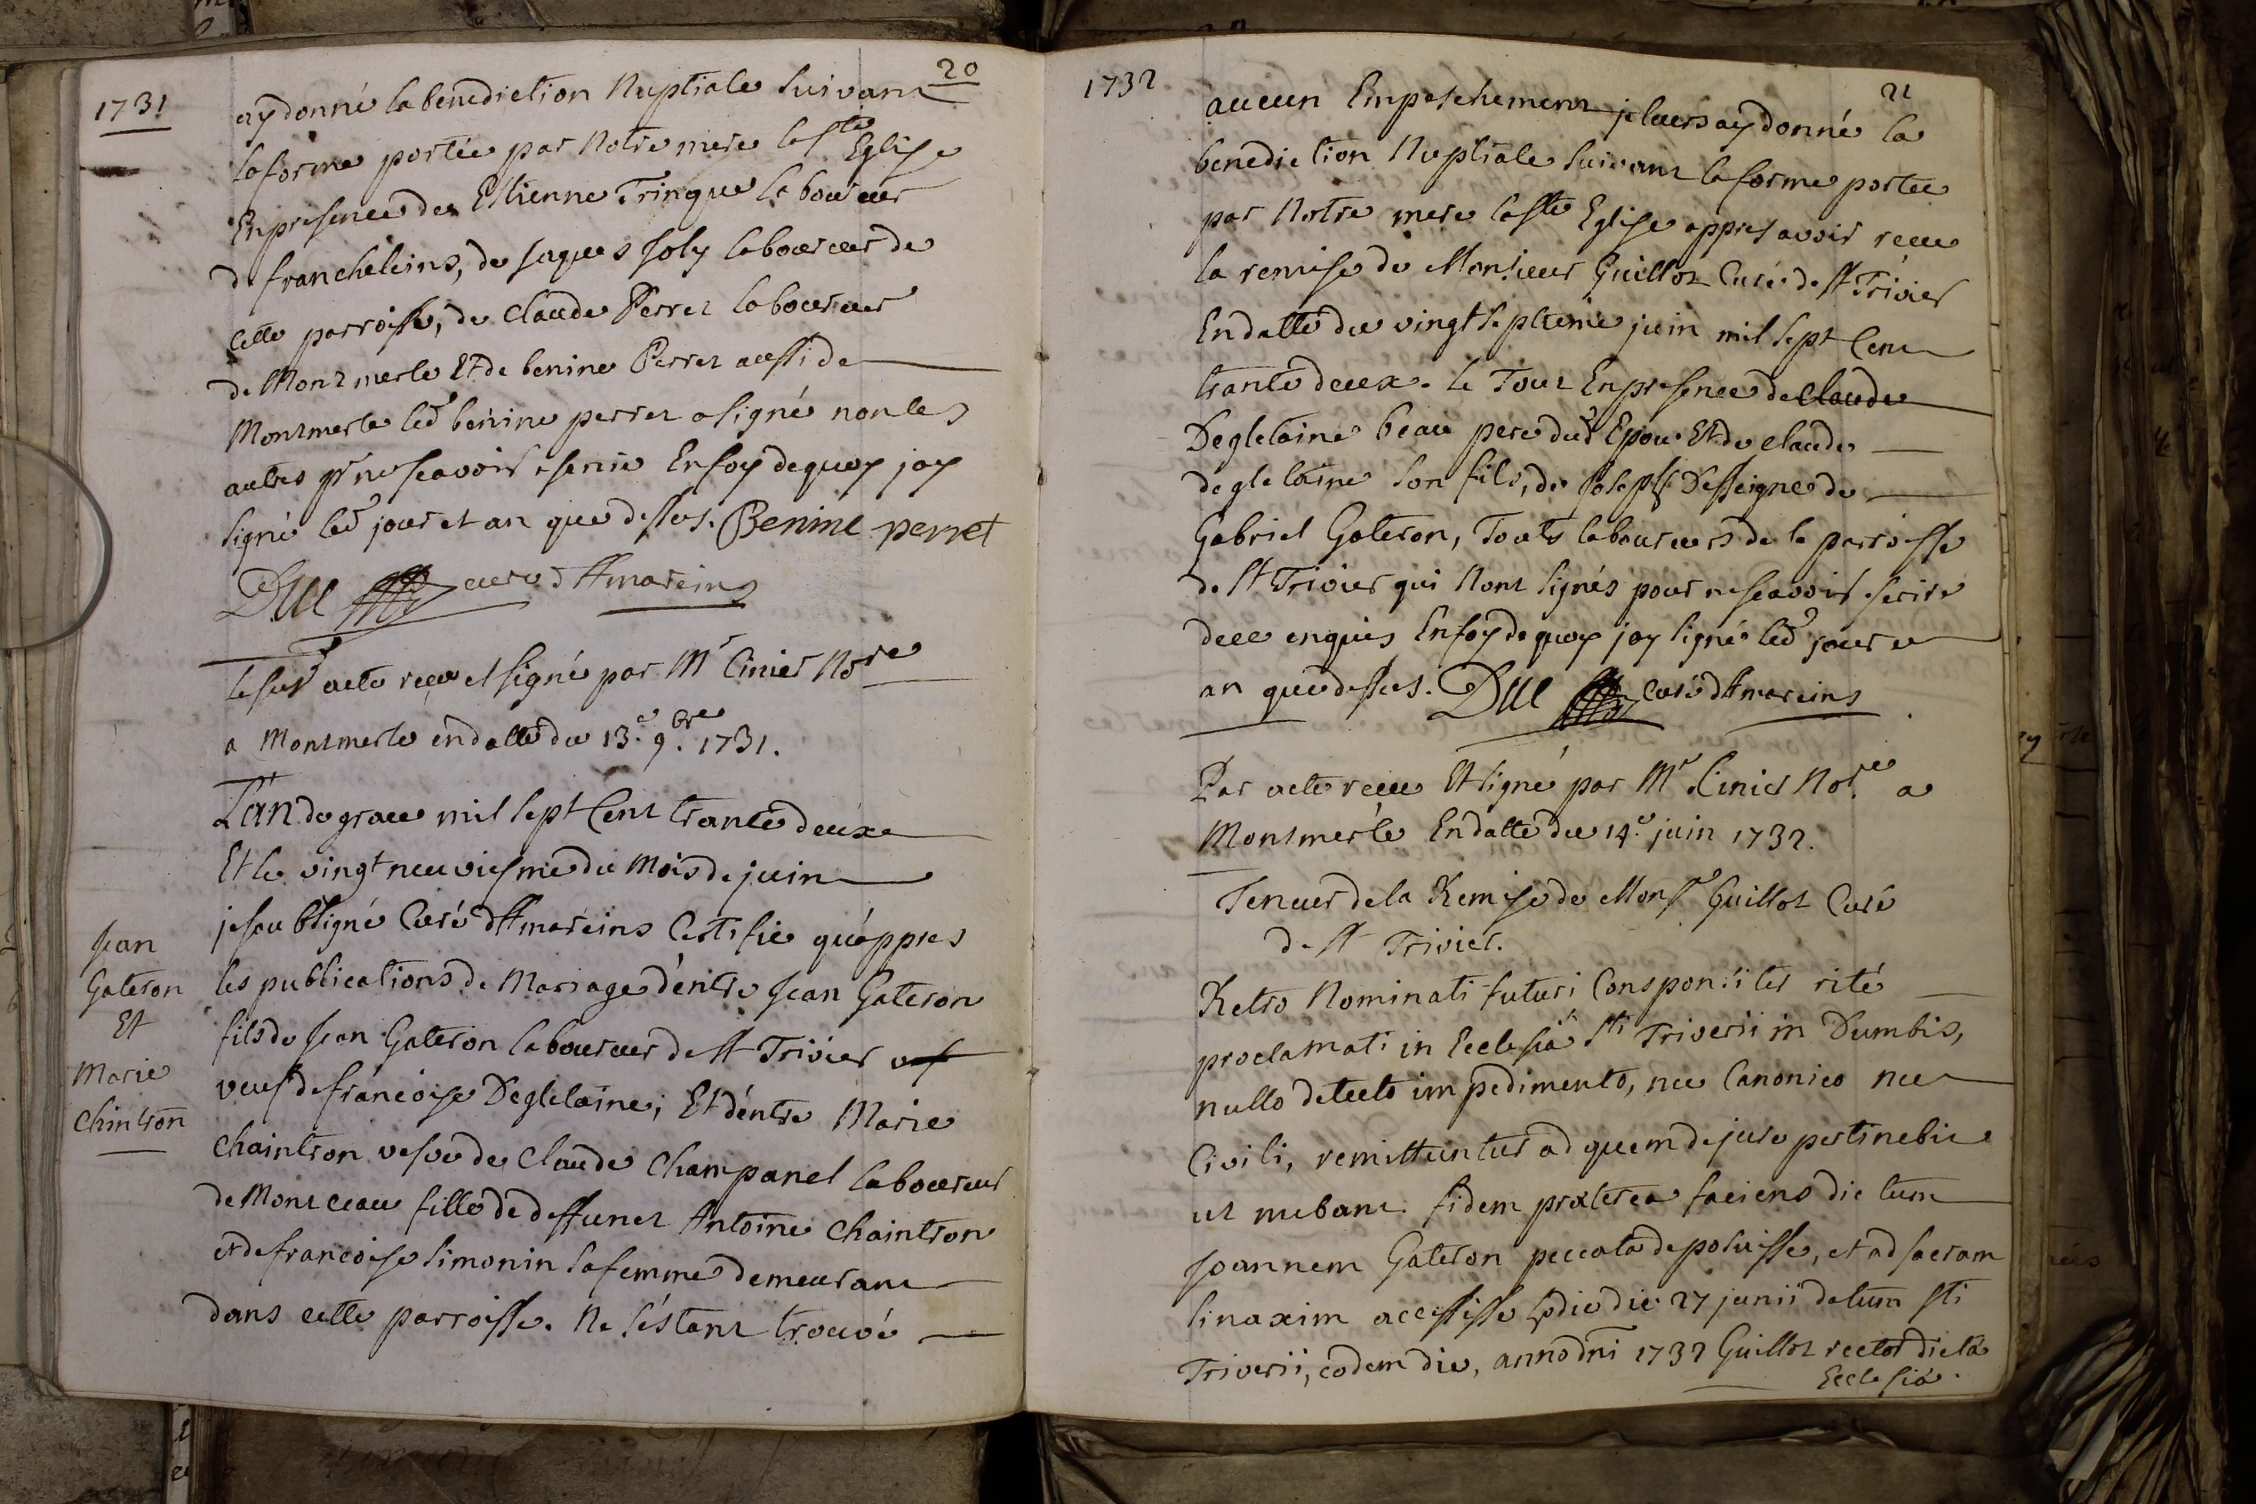 1731
20
ay donné la benediction Nuptiale suivant
la forme portée par Notre mere la Ste Eglise
En presence de Estienne Trinque laboureur
de francheleins, de jaques joly laboureur de
cette parroisse, de Claude Perret laboureur
de Montmerle Et de benine Perret aussi de
Montmerle led benine perret a signé non les
autres pr ne scavoir escrire En foy de quoy jay
signé led jour et an que dessus. Benine perret
Duc curé d'Amareins
le sud acte receu et signé par Mr Cinier Nore
a Montmerle en datte du 13e 9bre 1731.
L'an de grace mil sept Cent trante deux
Et le vingt neuviesme du Mois de juin
je soubsigné Curé d'Amareins Certifie qu'appres
les publications de Mariage d'entre Jean Gateron
fils de Jean Gateron laboureur de St Trivier
veuf de françoise Degletaine; Et d'entre Marie
Chaintron vefve de Claude Champanel laboureur
de Montceau fille de deffunct Antoine Chaintron
et de francoise simonin sa femme demeurant
dans cette parroisse. Ne s'estant trouvé
Jean
Gateron
Et
Marie
Chintron
1732
21
aucun Empeschement je leurs ay donné la
benediction Nuptiale suivant la forme portée
par Notre mere la Ste Eglise appres avoir receu
la remise de Monsieur Guillot Curé de St Trivier
En datte du vingt septieme juin mil sept Cent
trante deux. le Tout En presence de Claude
Degletaine beau pere dud Epou Et de claude
degletaine son fils, de Joseph Desseigne de
Gabriel Gateron, Touts laboureurs de la parroisse
de St Trivier qui Nont signés pour ne scavoir escrire
deue enquis En foy de quoy jay signé led jour et
an que dessus. Duc Curé d'Amareins
Par acte receu Et signé par Mr Cinier Nore a
Montmerle En datte du 14e juin 1732.
Teneur de la Remise de Monsr Guillot Curé
de St Trivier.
Retro Nominati futuri Consponsi ter rité
proclamati in Ecclesiâ Sti Triverii in Dumbis,
nullo detecto impedimento, nec Canonico nec
Civili, remittuntur ad quem de jure pertinebit
ut nubant. fidem præterea faciens dictum
Joannem Gateron peccata deposuisse, et ad sacram
sinaxim accessisse hodie die 27 junii datum Sti
Triverii, eodem die, anno dni 1732 Guillot rector dictæ
Ecclesiæ.